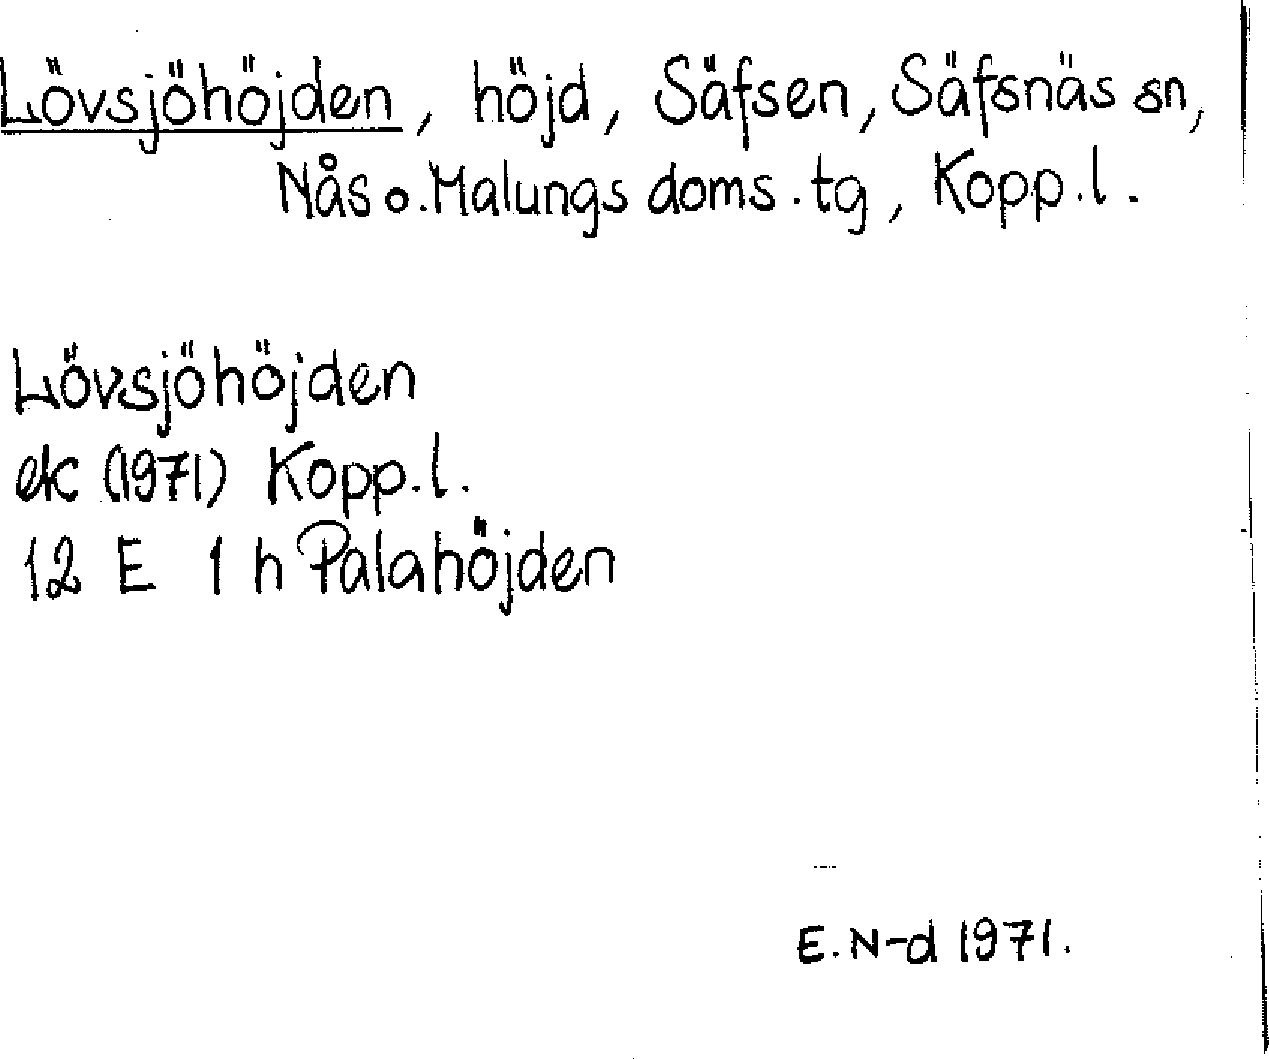 Lövsjöhöjden, höjd, Säfsen, Säfsnäs sn,
Nås o. Malungs doms.tg, Kopp.l.
Lövsjöhöjden
ek (1971) Kopp.l.
12 E 1 h Palahöjden
E. N-d 1971.